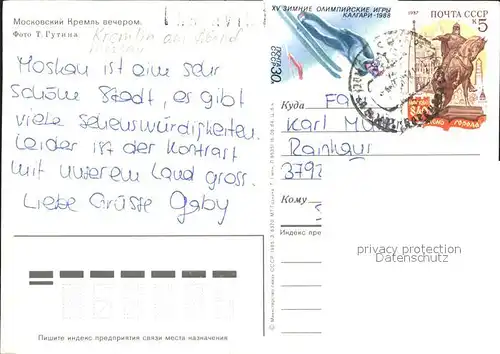 Московский Кремль вечером.
Фото Т. Гутина
Kremlin am Abend
Moskau
Moskau ist eine sehr
schöne Stadt, es gibt
viele Sehenswürdigkeiten.
Leider ist der Kontrast
mit unserem Land gross.
Liebe Grüsse Gaby
Пишите индекс предприятия связи места назначения
XV ЗИМНИЕ ОЛИМПИЙСКИЕ ИГРЫ
КАЛГАРИ·1988
1987
ПОЧТА СССР
5
К
Куда
Fa
Karl
Rainhaus
3792
Кому
Индекс пре
privacy protection
Datenschutz